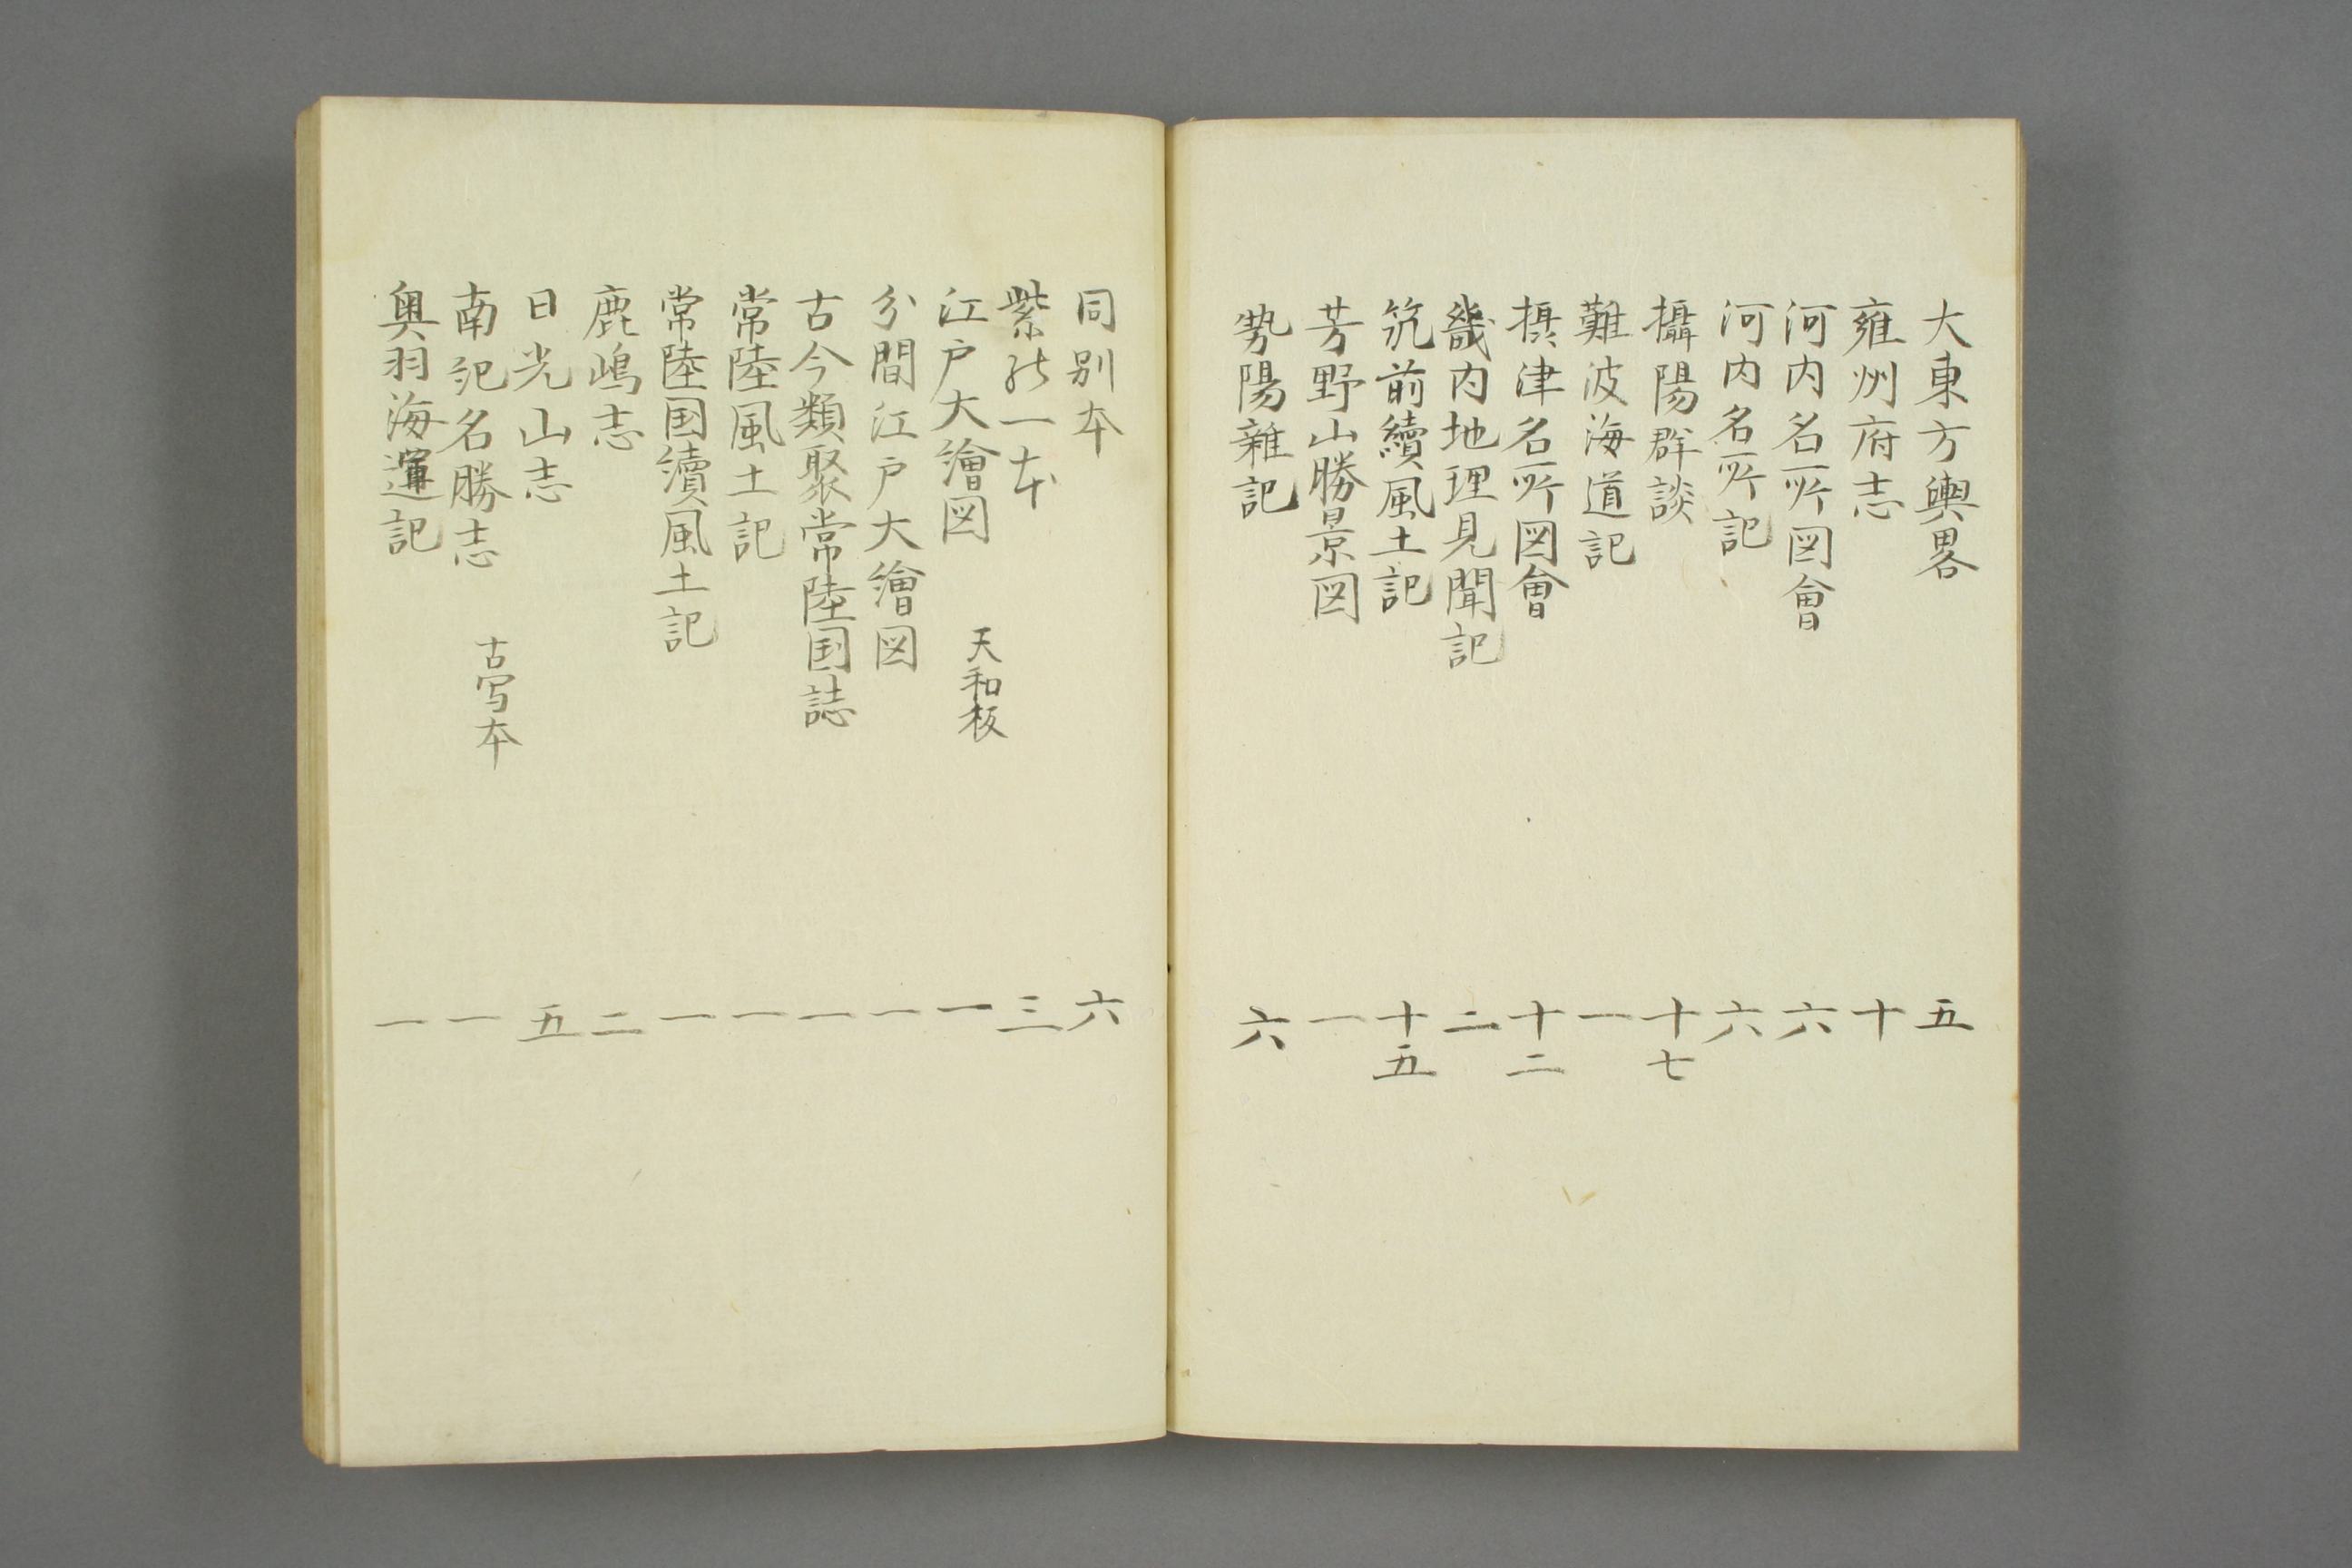 大東方輿畧 五
雍州府志 十
河内名所図會 六
河内名所記 六
攝陽群談 十七
難波海道記 一
摂津名所図會 十二
畿内地理見聞記 二
筑前續風土記 十五
芳野山勝景図 一
勢陽雜記 六
同別本 六
紫の一本 三
江戸大繪図 天和板 一
分間江戸大繪図 一
古今類聚常陸国誌 一
常陸風土記 一
常陸国續風土記 一
鹿嶋志 二
日光山志 五
南紀名勝志 古写本 一
奥羽海運記 一